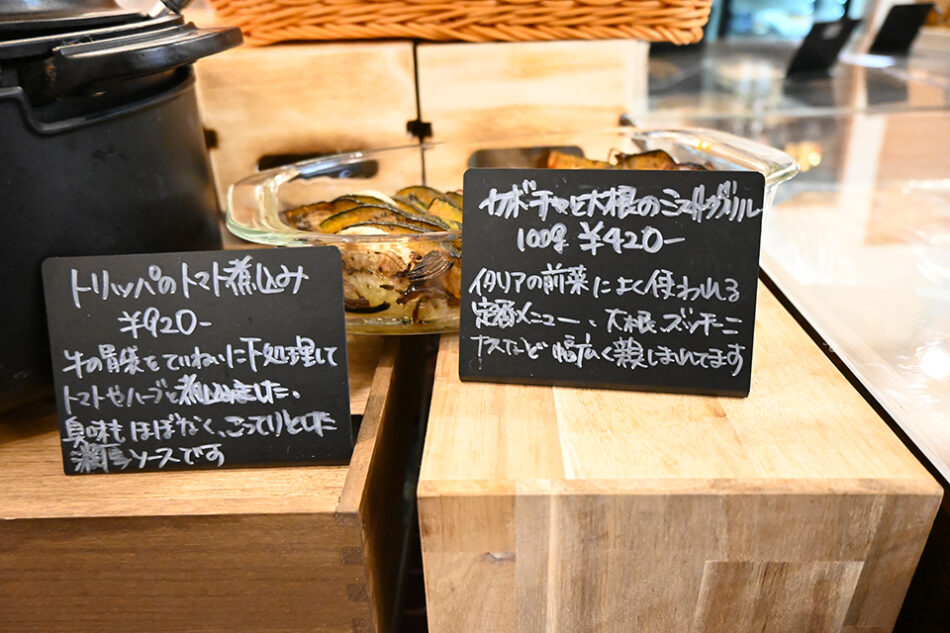 トリッパのトマト煮込み
¥920-
牛の胃袋をていねいに下処理して
トマトやハーブと煮込みました、
臭味もほぼなく、こってりとした
濃厚ソースです
カボチャと大根のミストグリル
100g ¥420-
イタリアの前菜によく使われる
定番メニュー、大根ズッチーニ
ナスなど幅広く親しまれてます